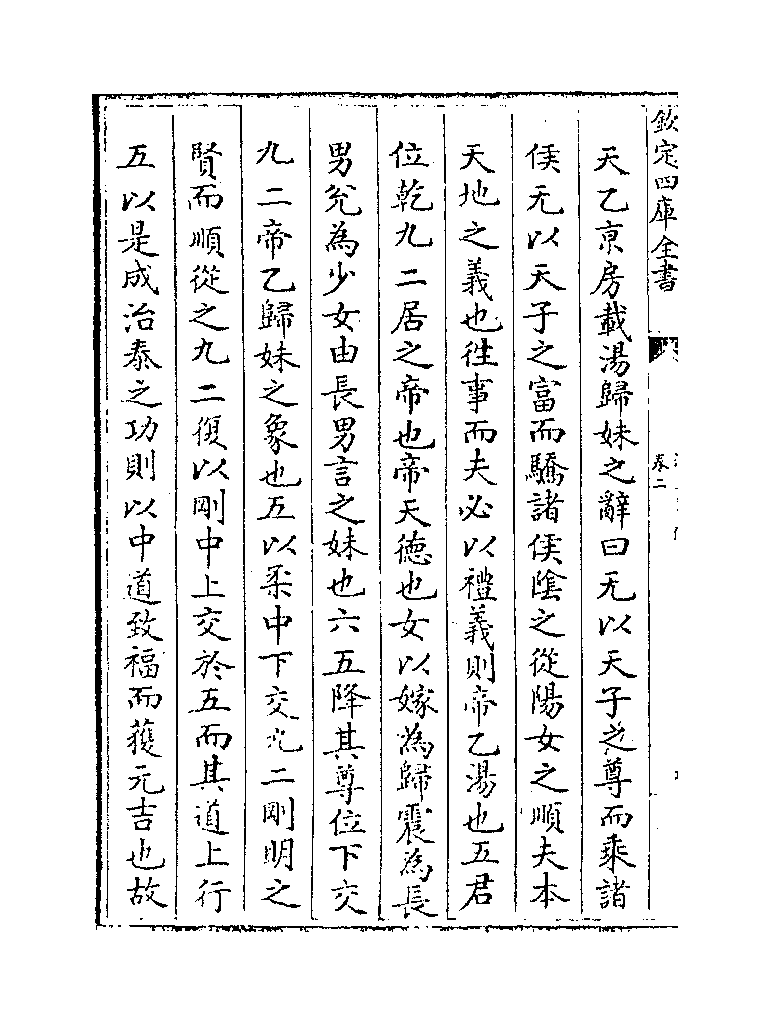 欽定四庫全書
卷二
天乙京房載湯歸妹之辭曰无以天子之尊而乘諸
侯无以天子之富而驕諸侯陰之從陽女之順夫本
天地之義也徃事而夫必以禮義則帝乙湯也五君
位乾九二居之帝也帝天德也女以嫁為歸震為長
男兊為少女由長男言之妹也六五降其尊位下交
九二帝乙歸妹之象也五以柔中下交九二剛明之
賢而順從之九二復以剛中上交於五而其道上行
五以是成治泰之功則以中道致福而獲元吉也故